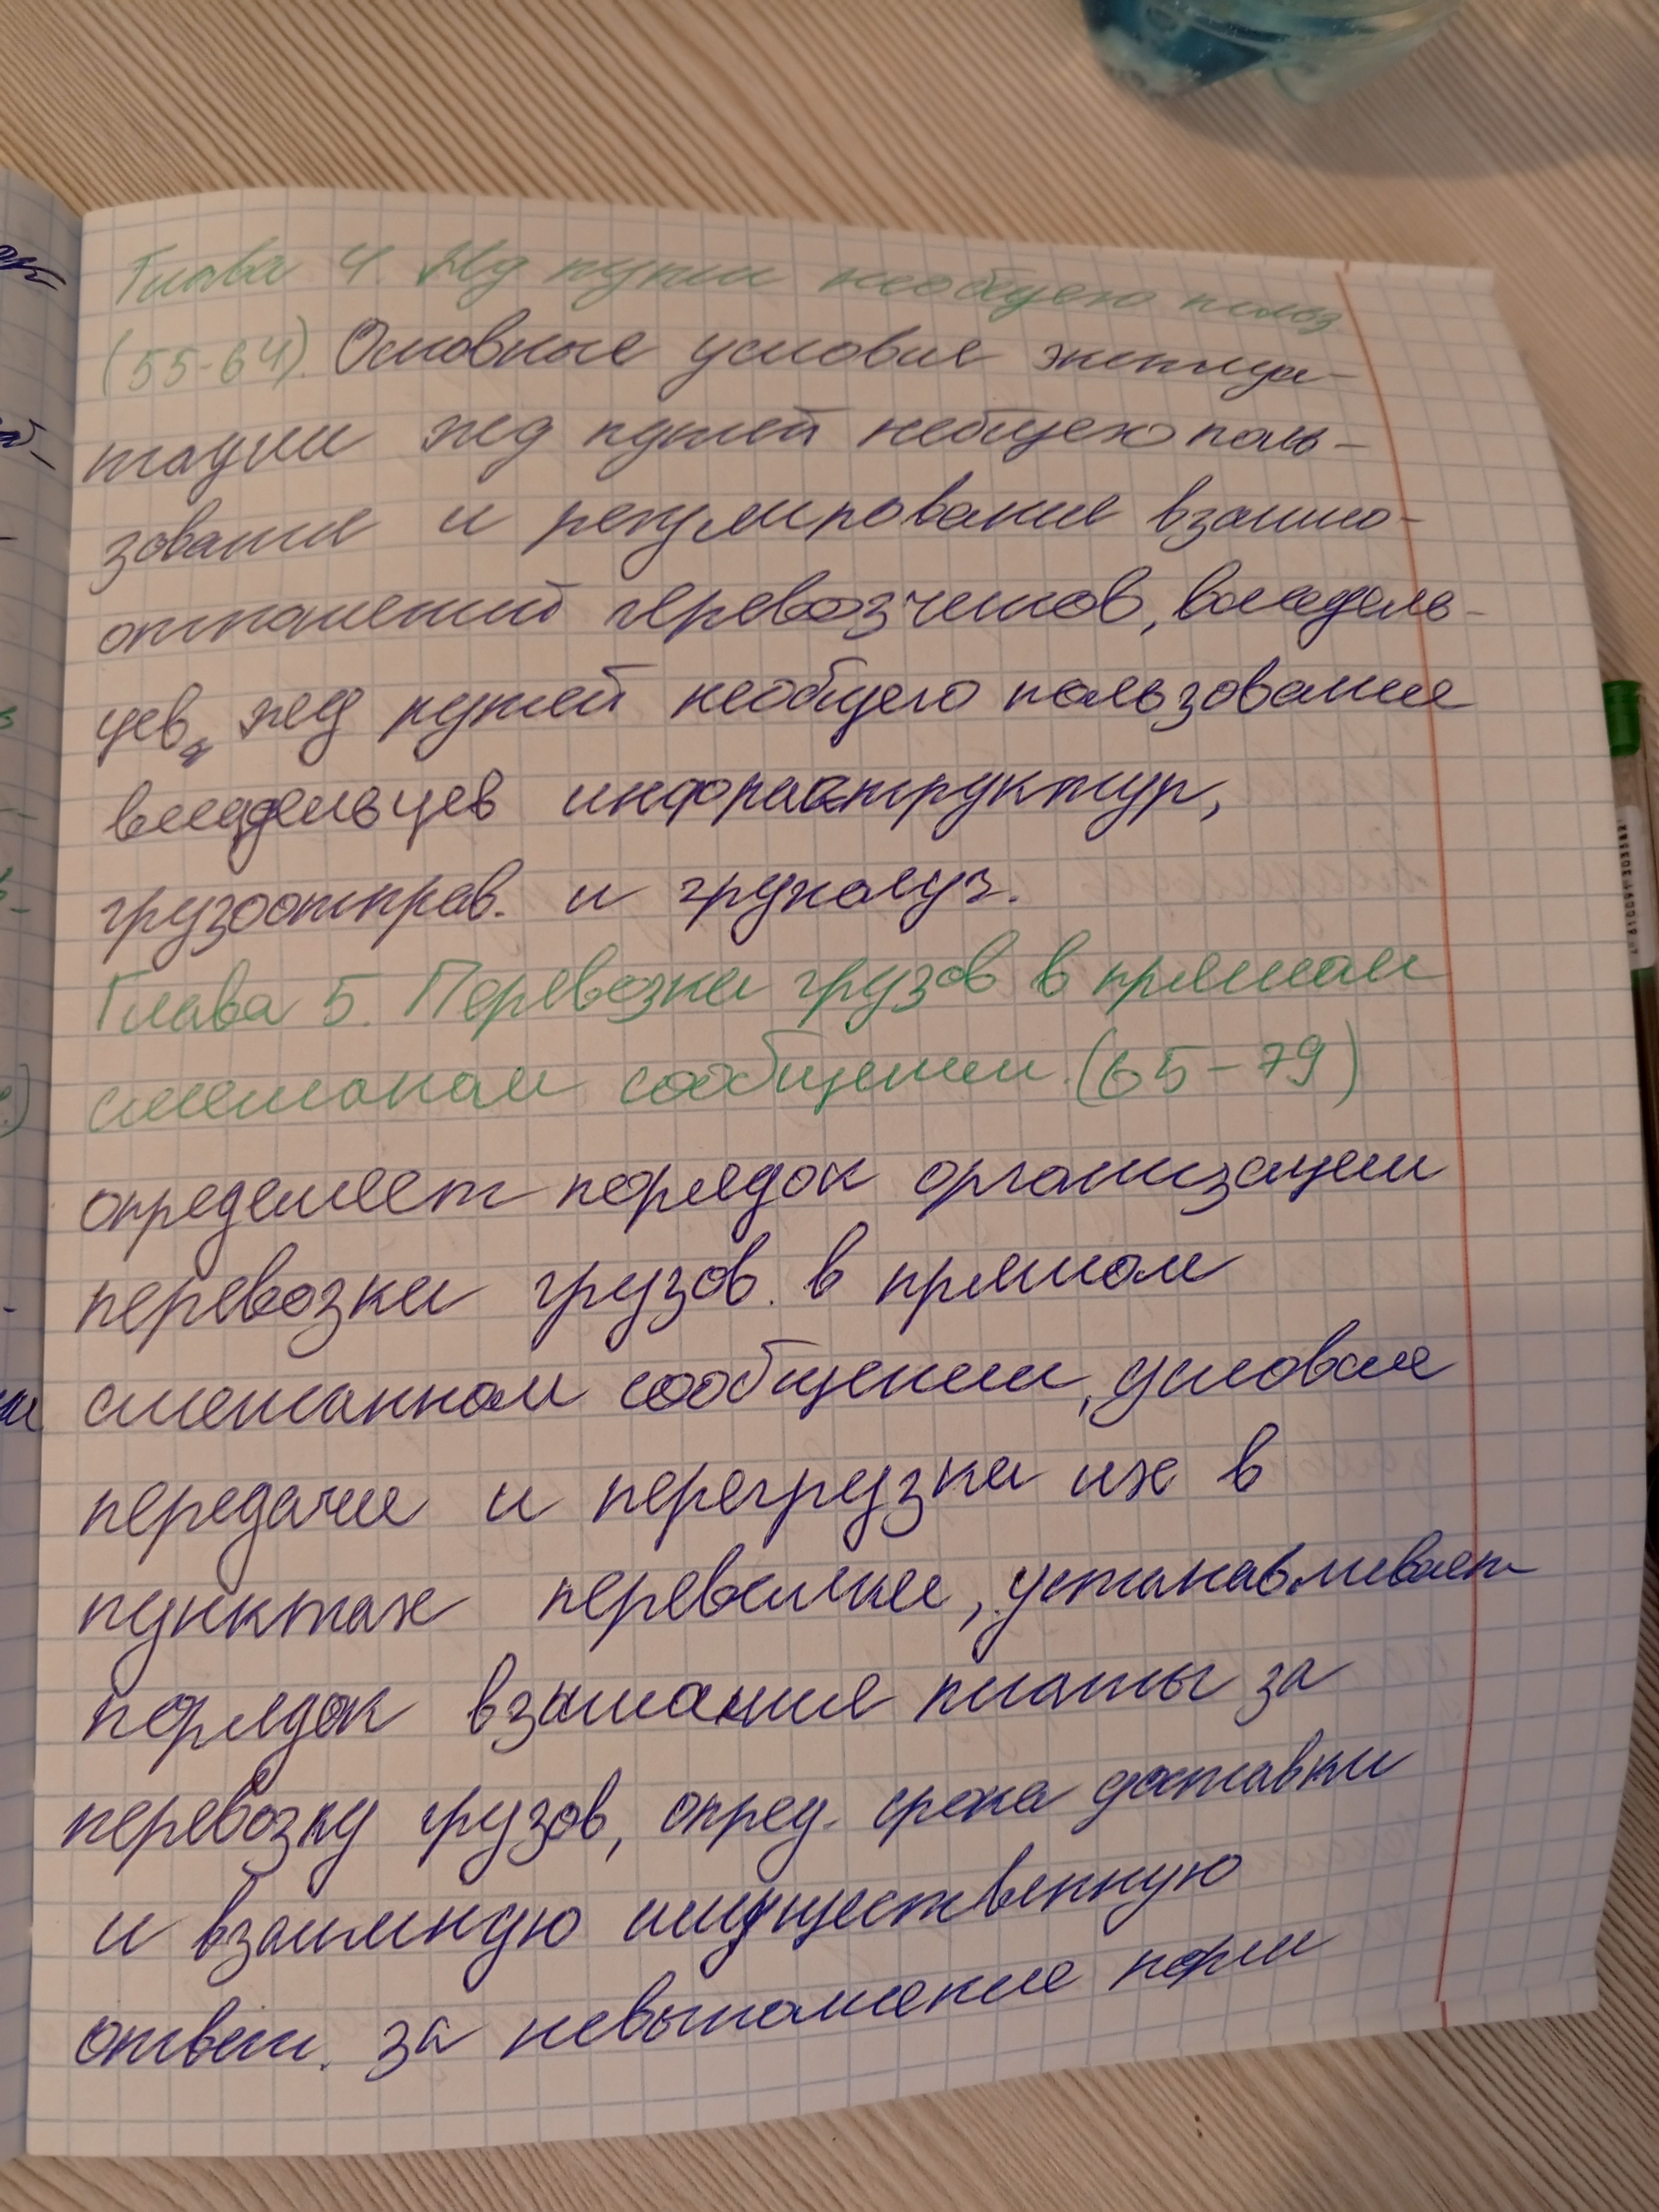 Глава 4. Жд пути необщего польз
(55-64). Основные условия эксплуа-
тации жд путей небщего поль-
зования и регулирования взаимо-
отношений перевозчиков, владель-
цев, жд путей необщего пользования
владельцев инфраструктур,
грузоотправ. и груполуч.
Глава 5. Перевозки грузов в прямом
смешаном сообщении. (65-79)
определяет порядок организации
перевозки грузов. в прямом
смешанном сообщении, условия
передачи и перегрузки их в
пунктах перевалки, устанавливает
порядок взымания платы за
перевозку грузов, опред. срока доставки
и взаимную имущественную
ответ. за невыполнение норм